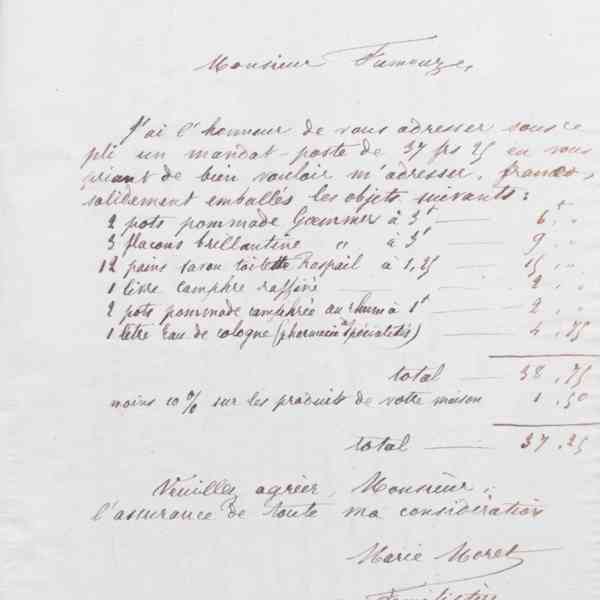 Monsieur Fumouze,
J'ai l'honneur de vous adresser sous ce
pli un mandat-poste de 37 frs 25 en vous
priant de bien vouloir m'adresser, franco,
solidement emballés les objets suivants :
2 pots pommade à 3f — 6f "
3 flacons brillantine " à 3f 9 "
12 pains savon toilette Raspail à 1,25 — 15 "
1 livre camphre raffiné — 2 "
2 pots pommade camphrée au rhum à 1f — 2 "
1 litre Eau de cologne (pharmacie spécialités) — 4,75
total — 38,75
moins 10% sur les produits de votre maison 1,50
total — 37,25
Veuillez agréer, Monsieur,
l'assurance de toute ma considération
Marie Moret
Familistère